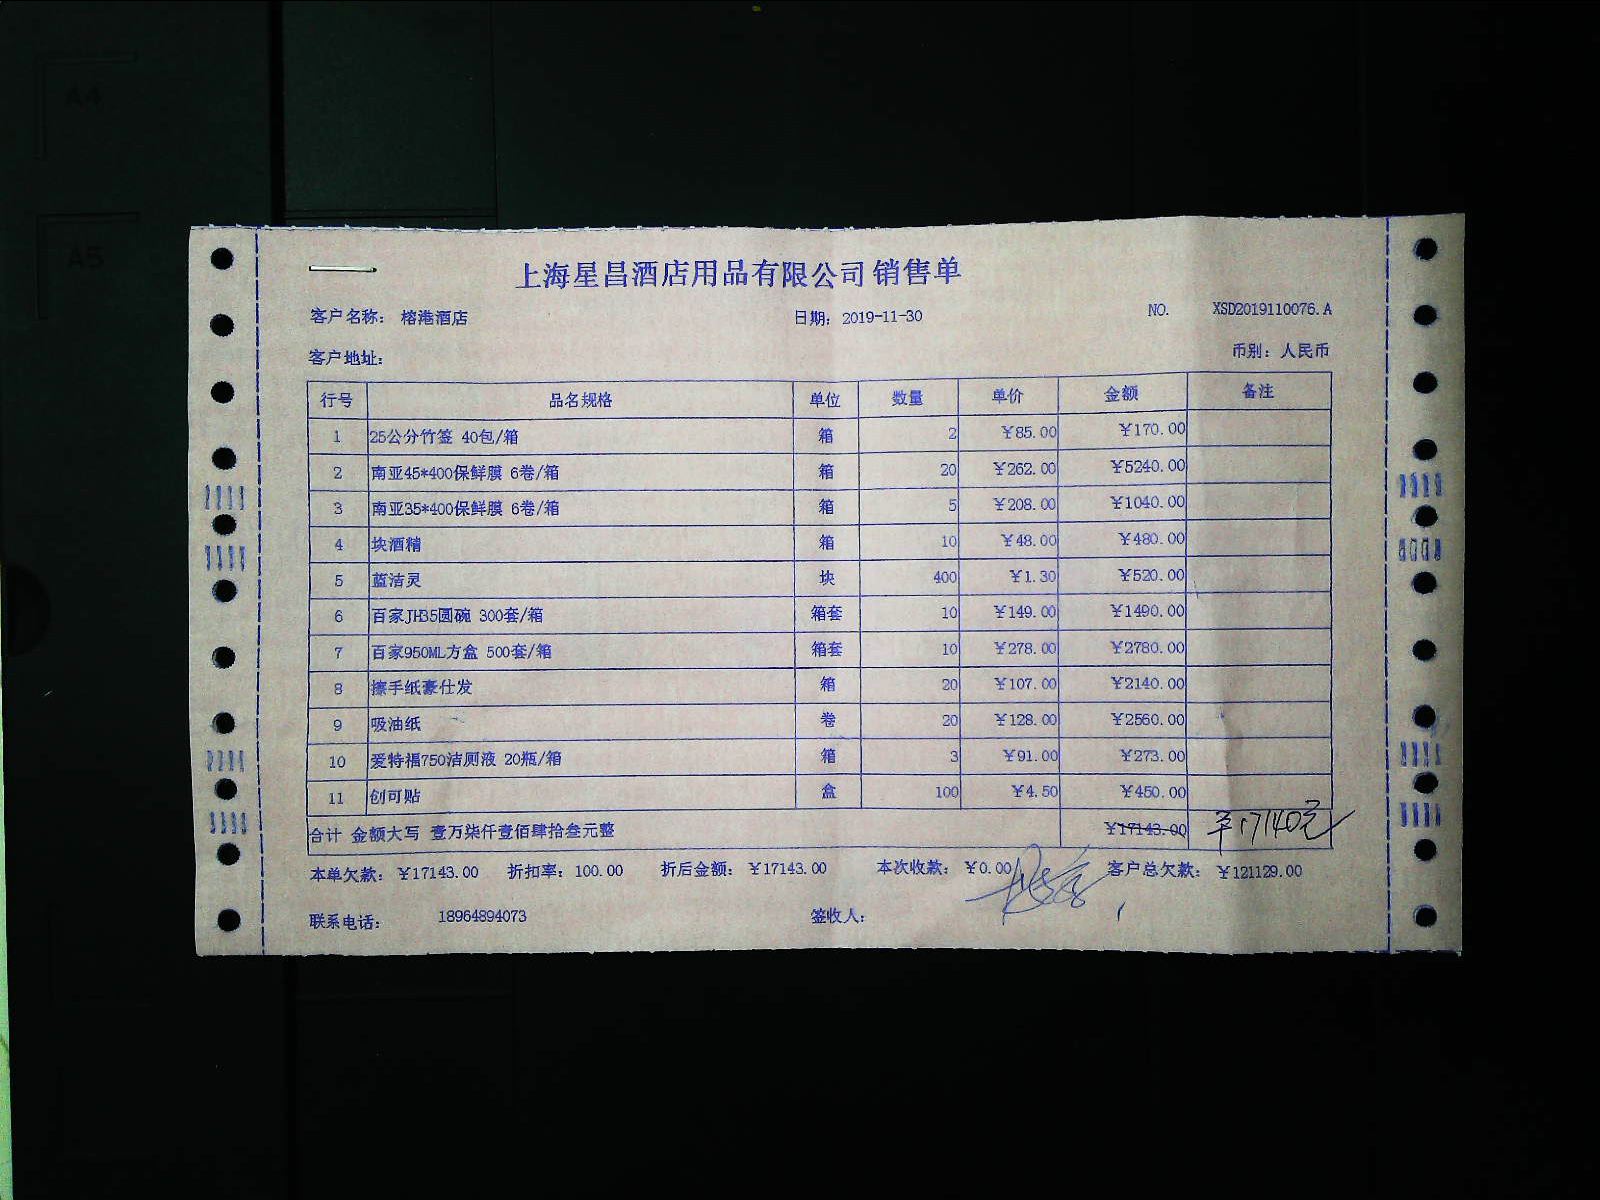 A4
A5
上海星昌酒店用品有限公司 销售单
客户名称： 榕港酒店 日期：2019-11-30 NO. XSD2019110076.A
客户地址： 币别：人民币
行号 品名规格 单位 数量 单价 金额 备注
1 25公分竹签 40包/箱 箱 2 ¥85.00 ¥170.00
2 南亚45*400保鲜膜 6卷/箱 箱 20 ¥262.00 ¥5240.00
3 南亚35*400保鲜膜 6卷/箱 箱 5 ¥208.00 ¥1040.00
4 块酒精 箱 10 ¥48.00 ¥480.00
5 蓝洁灵 块 400 ¥1.30 ¥520.00
6 百家JH35圆碗 300套/箱 箱套 10 ¥149.00 ¥1490.00
7 百家950ML方盒 500套/箱 箱套 10 ¥278.00 ¥2780.00
8 擦手纸豪仕发 箱 20 ¥107.00 ¥2140.00
9 吸油纸 卷 20 ¥128.00 ¥2560.00
10 爱特福750洁厕液 20瓶/箱 箱 3 ¥91.00 ¥273.00
11 创可贴 盒 100 ¥4.50 ¥450.00
合计 金额大写 壹万柒仟壹佰肆拾叁元整 ¥17143.00 ¥17140元
本单欠款：¥17143.00 折扣率：100.00 折后金额：¥17143.00 本次收款：¥0.00 客户总欠款：¥121129.00
联系电话： 18964894073 签收人：